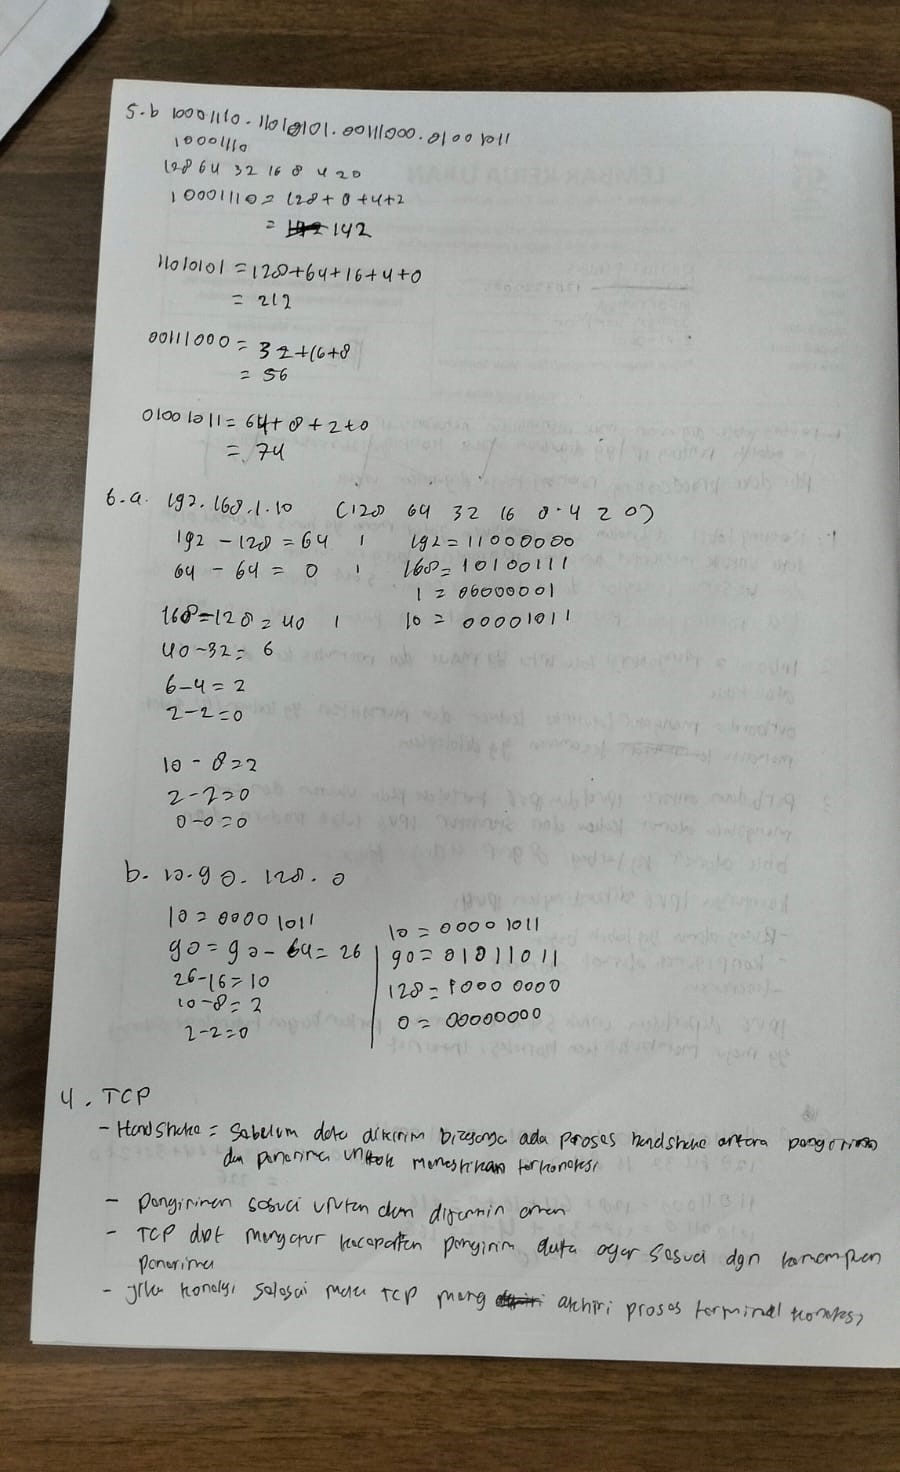 5.b 10001110.11010101.00111000.01001011
10001110
128 64 32 16 8 4 2 0
10001110 = 128 + 8 + 4 + 2
= 142
11010101 = 128 + 64 + 16 + 4 + 0
= 212
00111000 = 32 + 16 + 8
= 56
01001011 = 64 + 8 + 2 + 0
= 74
6.a. 192.168.1.10 (128 64 32 16 8 4 2 0)
192 - 128 = 64 1 192 = 11000000
64 - 64 = 0 1 168 = 10100111
1 = 00000001
168 - 128 = 40 1 10 = 00001011
40 - 32 = 6
6 - 4 = 2
2 - 2 = 0
10 - 8 = 2
2 - 2 = 0
0 - 0 = 0
b. 10.90.128.0
10 = 00001011
90 = 90 - 64 = 26
26 - 16 = 10
10 - 8 = 2
2 - 2 = 0
10 = 00001011
90 = 01011011
128 = 10000000
0 = 00000000
4. TCP
- Handshake = Sebelum data dikirim ada proses handshake antara pengirim
dan penerima untuk memastikan terkoneksi
- Pengiriman sesuai urutan dan dijamin aman
- TCP dpt mengatur kecepatan pengirim data agar sesuai dgn
penerima
- jika koneksi selesai maka TCP meng akhiri proses terminal koneksi